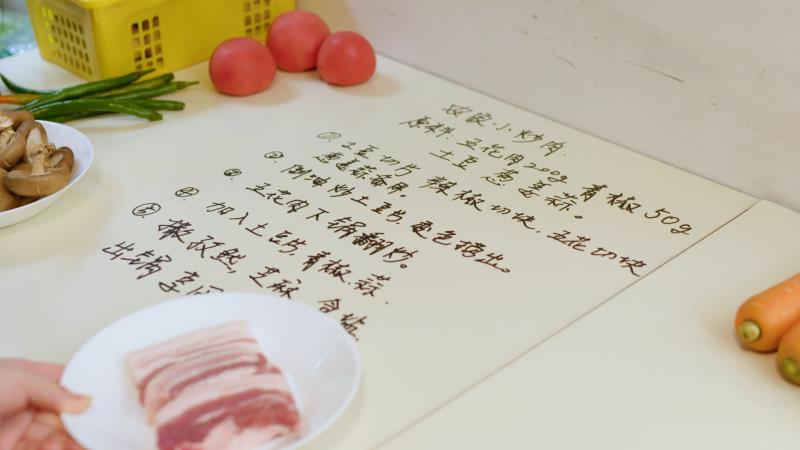 农家小炒肉.
原料: 五花肉200g 青椒50g
土豆 葱 姜 蒜。
① 土豆切片, 辣椒切块, 五花切块
葱姜蒜备用。
② 倒油炒土豆片, 变色捞出。
③ 五花肉下锅翻炒。
④ 加入土豆片, 青椒, 蒜.
⑤ 撒孜然, 芝麻, 食盐,
出锅享